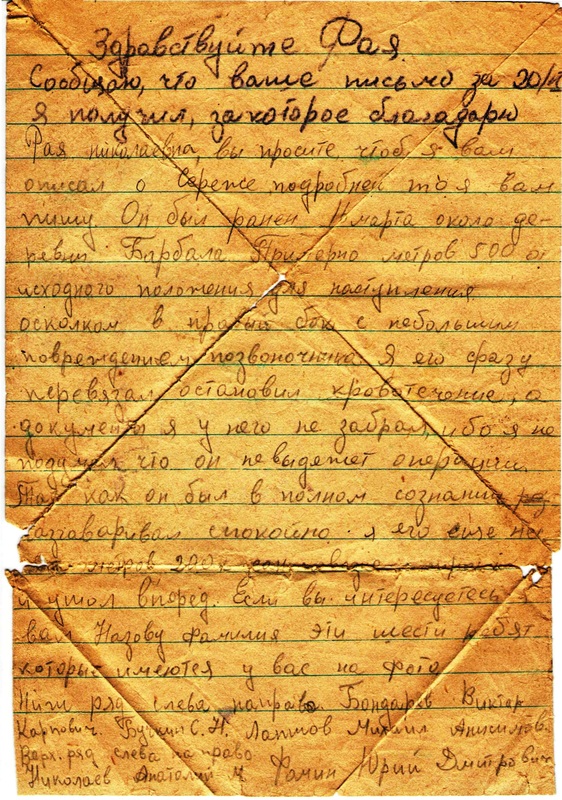 Здравствуйте Рая.
Сообщаю, что ваше письмо за 20/
я получил, за которое благодарю
Рая Николаевна, вы просите, чтоб я вам
описал о Сереже подробней то я Вам
пишу Он был ранен 11 марта около де-
ревни Барбала Примерно метров 500 от
исходного положения для наступления
осколком в правый бок с небольшим
повреждением позвоночника я его сразу
перевязал, остановил кровотечение, а
документы я у него не забрал, ибо я не
подумал что он не выдежет операции.
Так как он был в полном сознании
разговаривал спокойно. я его еще
метров 200
и ушол вперед. Если вы интересуетесь я
вам Назову фамилия эти шести ребят
который имеются у вас на фото
Нижн ряд слева направо Бондарев Виктор
Карпович. Бучкин С.Н. Лаптов Михаил Анисимов.
Верх. ряд слева на право
Николаев Анатолий Фомин Юрий Дмитрович